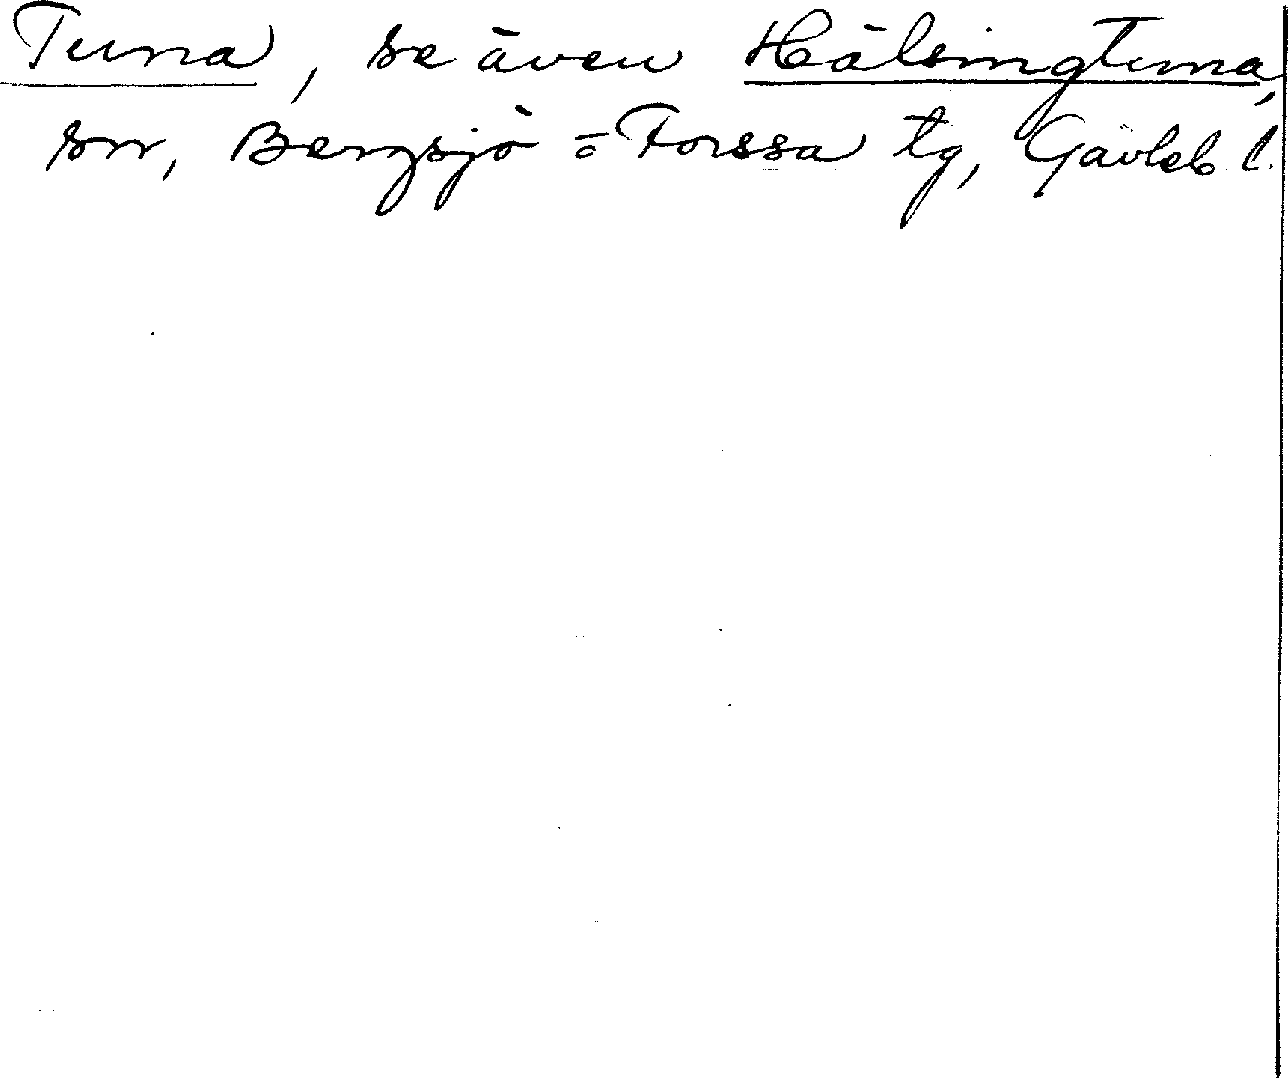 Tuna, se även Hälsingtuna,
sn, Bergsjö = Forssa tg, Gävleb l.